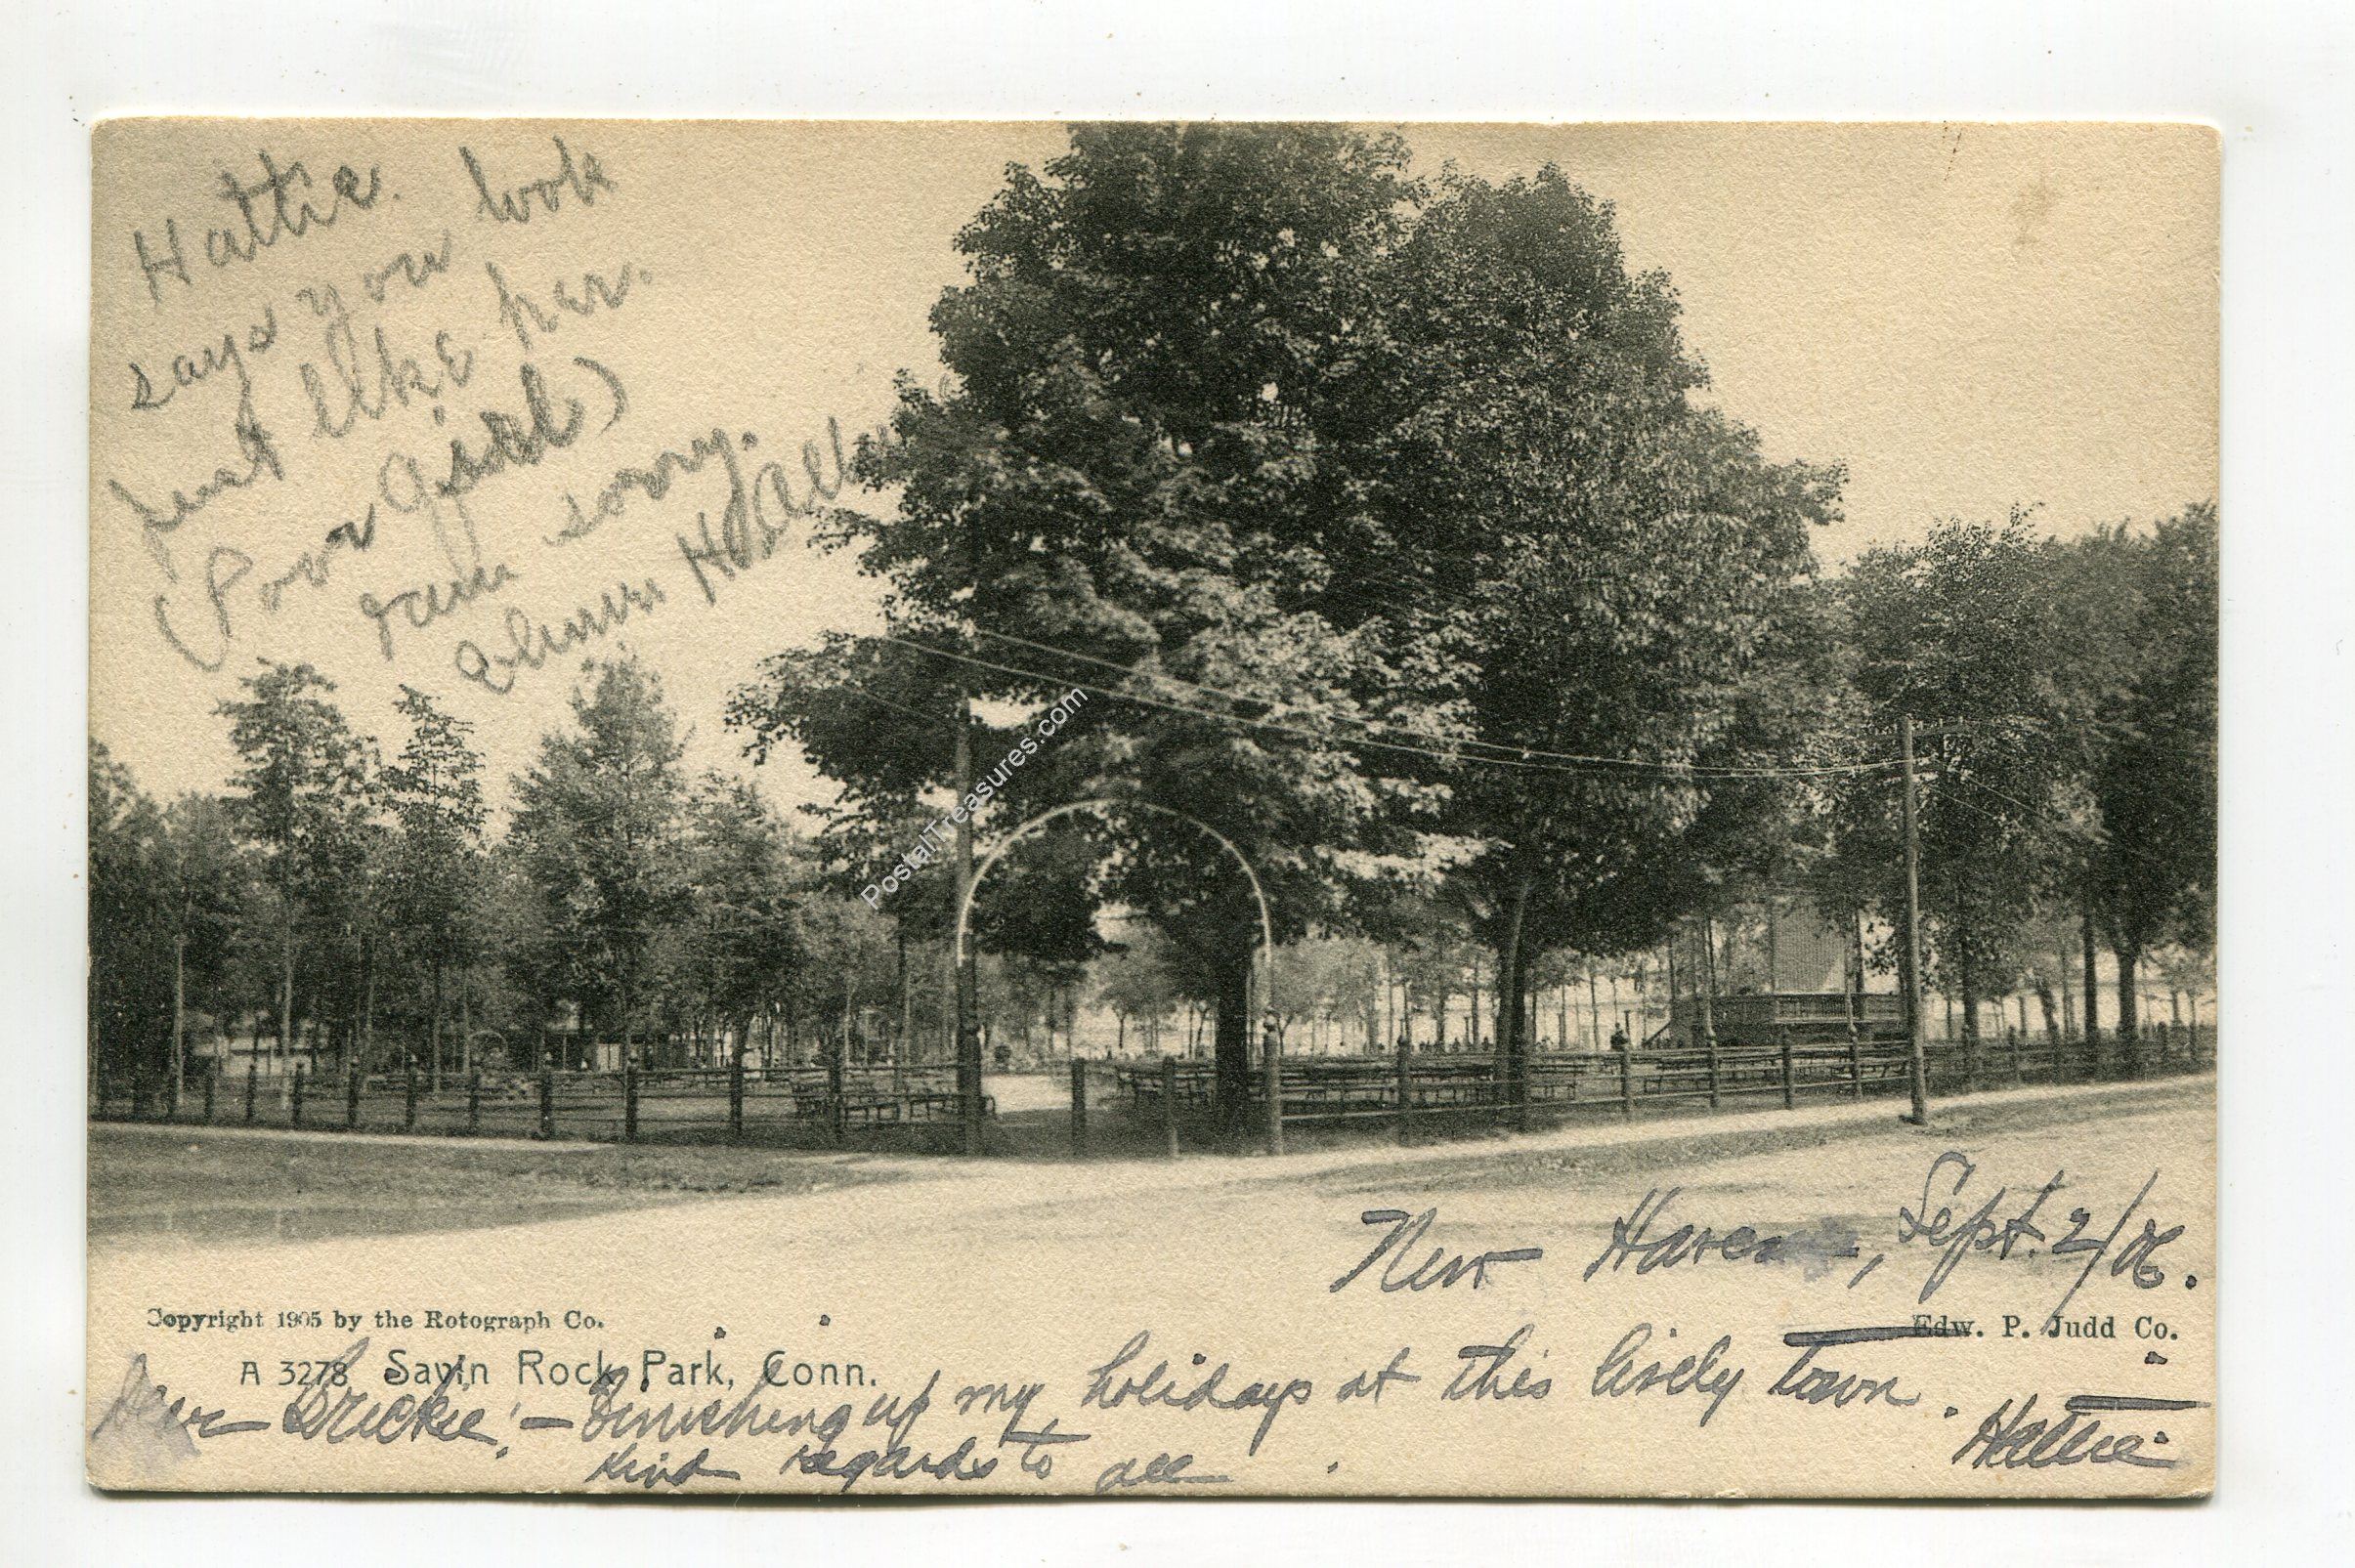 Hattie.
says you look
just like her.
(Poor Girl)
I am sorry.
PostalTreasures.com
New Haven, Sept. 2/06.
Copyright 1905 by the Rotograph Co.
Edw. P. Judd Co.
A 3278 Savin Rock Park, Conn.
Dear Brickie! - Finishing up my holidays at this lively town.
Kind regards to all.
Hattie